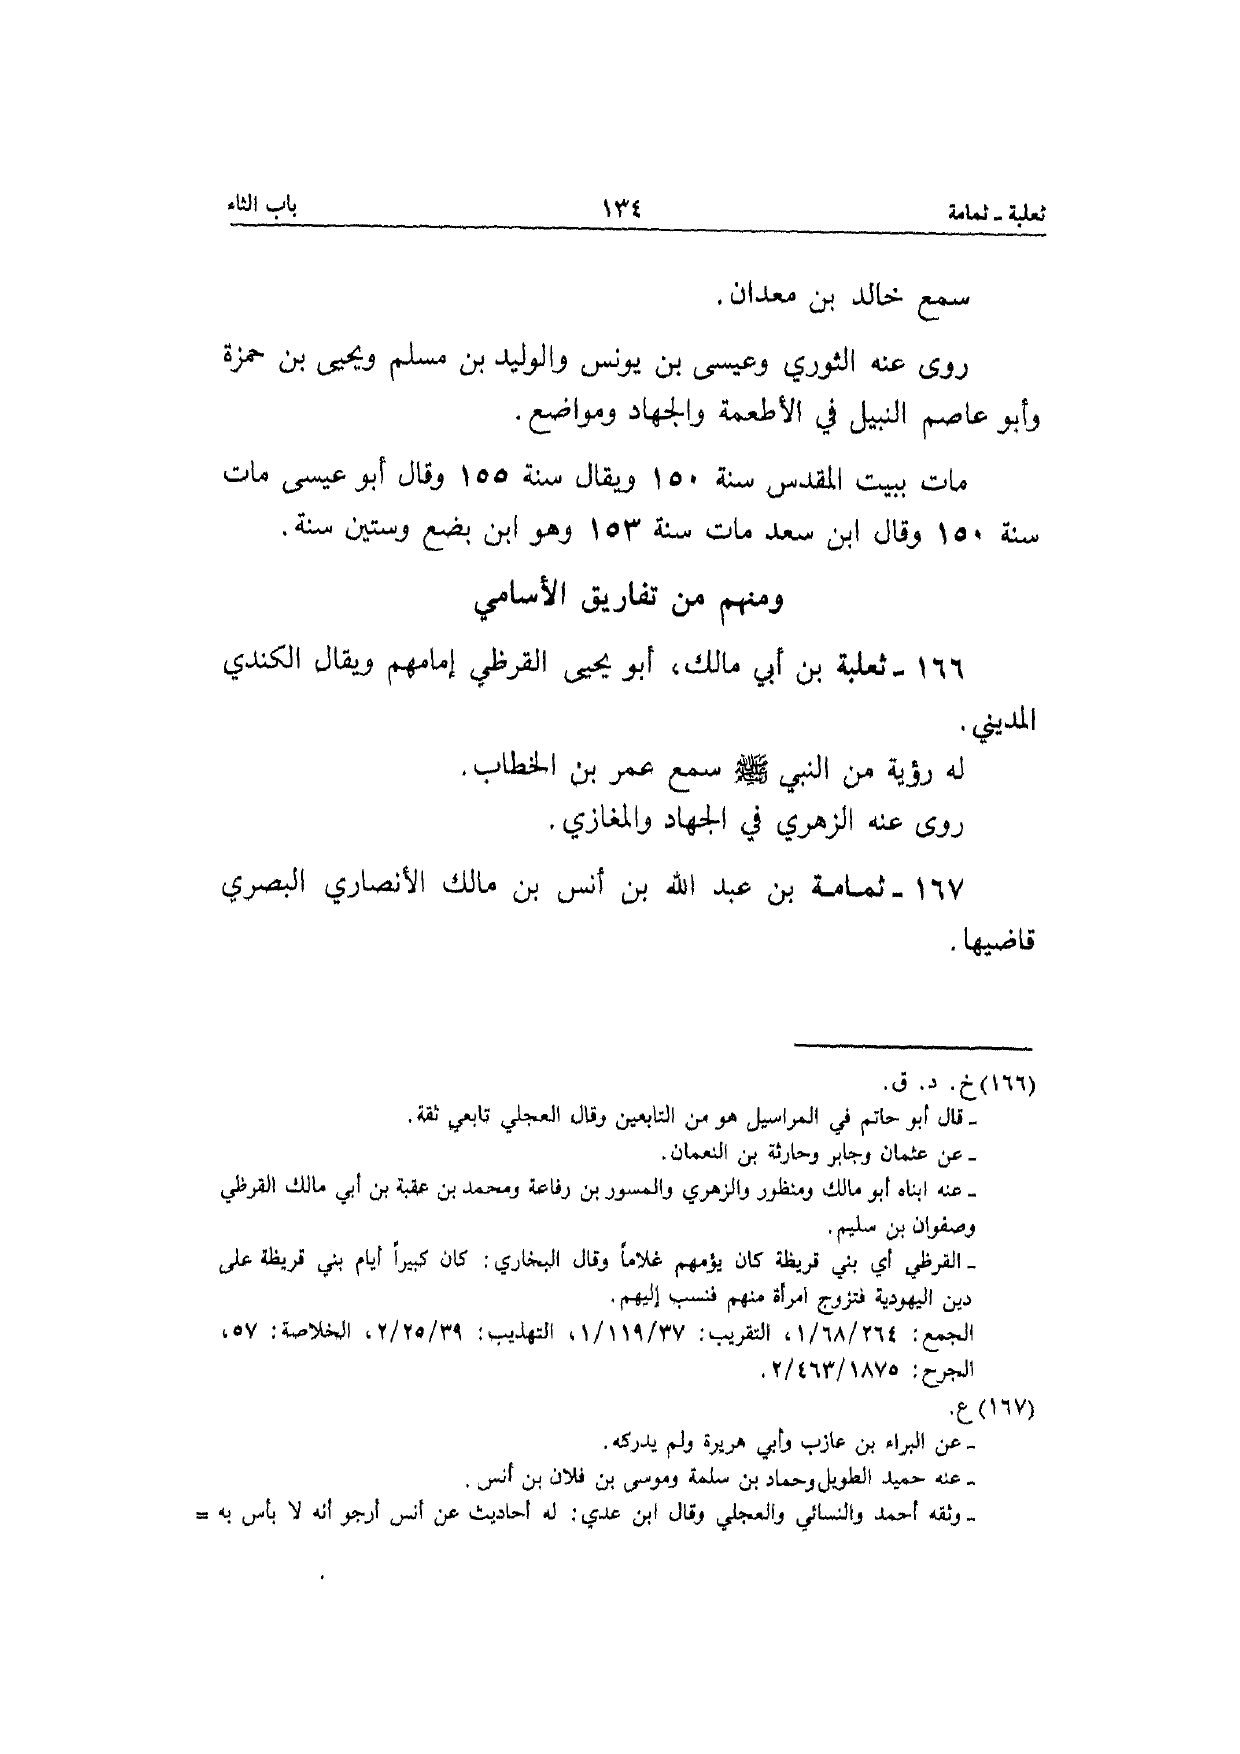 ثعلبة ـ ثمامة
١٣٤
باب الثاء
سمع خالد بن معدان.
روى عنه الثوري وعيسى بن يونس والوليد بن مسلم ويحيى بن حمزة
وأبو عاصم النبيل في الأطعمة والجهاد ومواضع.
مات ببيت المقدس سنة ١٥٠ ويقال سنة ١٥٥ وقال أبو عيسى مات
سنة ١٥٠ وقال ابن سعد مات سنة ١٥٣ وهو ابن بضع وستين سنة.
ومنهم من تفاريق الأسامي
١٦٦ ـ ثعلبة بن أبي مالك، أبو يحيى القرظي إمامهم ويقال الكندي
المديني.
له رؤية من النبي ﷺ سمع عمر بن الخطاب.
روى عنه الزهري في الجهاد والمغازي.
١٦٧ ـ ثمامة بن عبد الله بن أنس بن مالك الأنصاري البصري
قاضيها.
(١٦٦) خ. د. ق.
ـ قال أبو حاتم في المراسيل هو من التابعين وقال العجلي تابعي ثقة.
ـ عن عثمان وجابر وحارثة بن النعمان.
ـ عنه ابناه أبو مالك ومنظور والزهري والمسور بن رفاعة ومحمد بن عقبة بن أبي مالك القرظي
وصفوان بن سليم.
ـ القرظي أي بني قريظة كان يؤمهم غلاماً وقال البخاري: كان كبيراً أيام بني قريظة على
دين اليهودية فتزوج امرأة منهم فنسب إليهم.
الجمع: ١/٦٨/٢٦٤، التقريب: ١/١١٩/٣٧، التهذيب: ٢/٢٥/٣٩، الخلاصة: ٥٧،
الجرح: ٢/٤٦٣/١٨٧٥.
(١٦٧) ع.
ـ عن البراء بن عازب وأبي هريرة ولم يدركه.
ـ عنه حميد الطويل وحماد بن سلمة وموسى بن فلان بن أنس.
ـ وثقه أحمد والنسائي والعجلي وقال ابن عدي: له أحاديث عن أنس أرجو أنه لا بأس به =